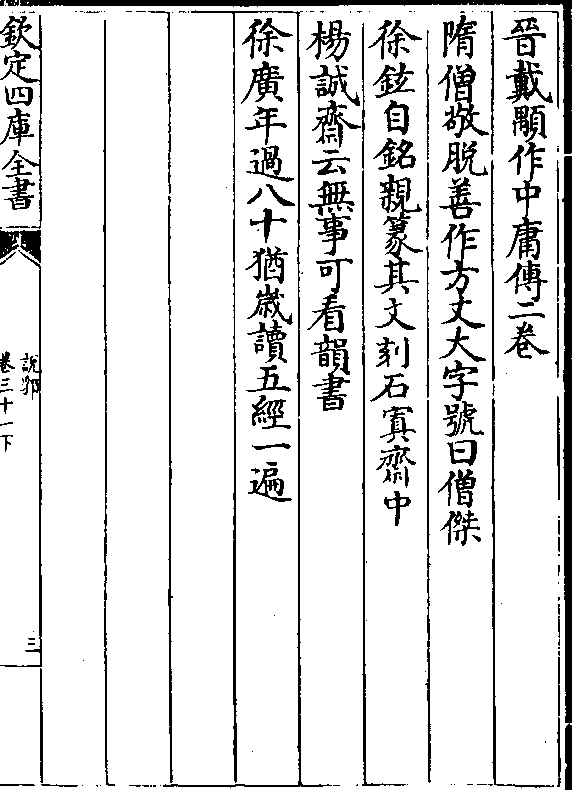 晉戴顒作中庸傳二卷
隋僧敬脱善作方丈大字號曰僧傑
徐鉉自銘親篆其文刻石寘齋中
楊誠齋云無事可看韻書
徐廣年過八十猶嵗讀五經一遍
欽定四庫全書
說郛
卷三十一下
三